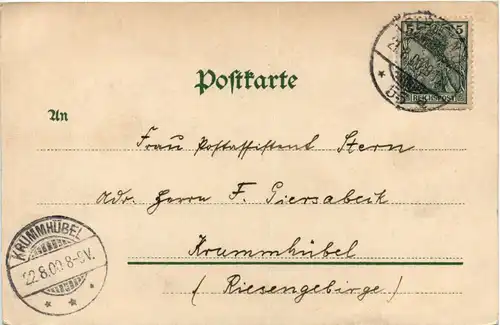 5 5
REICHSPOST
Postkarte
An
Frau Postassistent Stern
Adr. Herrn F. Giersabeck
Krummhübel
(Riesengebirge)
KRUMMHÜBEL
22.8.00.8-9V.